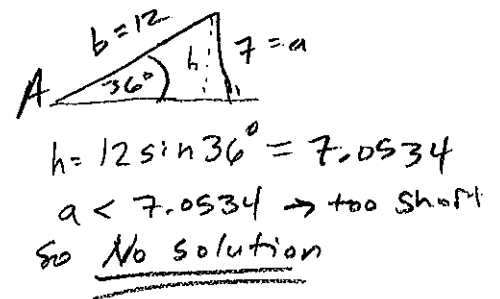 b = 12
A 36° h 7 = a
h = 12 sin 36° = 7.0534
a < 7.0534 → too short
so No solution